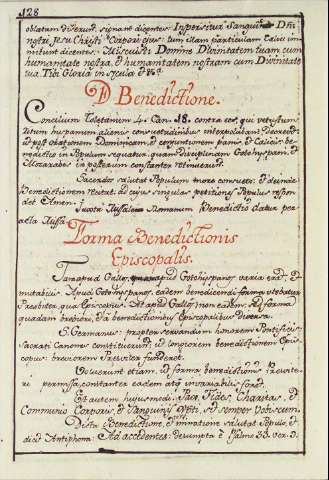 128
oblatam diverunt, signant dicentes: Inspersitur Sanguine Dñi
nostri Jesu Christi Corpori ejus: tum illam particulam Calici im-
mittunt dicentes: Miscuisti Domine Divinitatem tuam cum
humanitate nostra, & humanitatem nostram cum Divinitate
tua. Tibi Gloria in Sæcula &c.ª
D Benedictione.
Concilium Toletanum 4. Can. 18. contra eos, qui vetustum
ritum hispanum alienis consuetudinibus interpolabant Decrevit:
ut post orationem Dominicam, & conjunctionem panis, & Calicis be-
nedictio in Populum sequatur, quam disciplinam Gotohispani, &
Mozarabes in posterum constanter tenuerunt.
Sacerdos salutat Populum more consueto: & deinde
Benedictionem recitat: ad cujus singulas petitiones Populus respon
det Amen:
Juxta Missale Romanum Benedictio datur pe-
racta Missa.
Forma Benedictionis
Episcopalis.
Tam apud Gallos, quam apud Gotohispanos varia erat, &
mutabilis. Apud Gotohispanos eadem benedicendi forma utebatur
Presbiter, qua Episcopus: At apud Gallos non eadem, sed forma
quadam breviori, & a benedictionibus Episcopalibus diversa.
S. Germanus: propter servandum honorem Pontificis;
Sacrati Canones constituerunt, ut longiorem benedictionem Epis-
copus: breviorem Presviter funderet.
Voluerunt etiam, ut forma benedictionis Presvite-
ri permissa, constanter eadem atq invariabilis foret.
Est autem hujusmodi: Pax, Fides, Charitas, &
Communio Corporis, & Sanguinis Dñi, sit semper Vobiscum.
Dicta Benedictione, & immatione salutat Populũ, &
dicit Antiphona: Ad accedentes: desumpta è Psalmo 33. ver. 9.